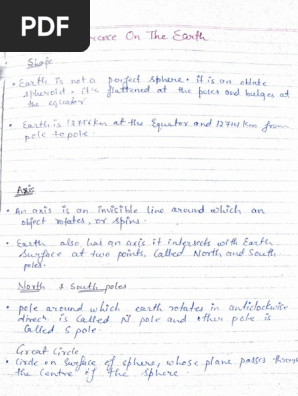 PDF
On The Earth
Shape
• Earth is not a perfect sphere. it is an oblate
spheroid. it's flattened at the poles and bulges at
the equator
• Earth is 12756km at the Equator and 12714km from
pole to pole.
Axis
• An axis is an invisible line around which an
object rotates, or spins.
• Earth also has an axis it intersects with Earth
surface at two points, Called North and South
poles.
North & South poles
• pole around which earth rotates in anticlockwise
direcn is Called N pole and other pole is
Called S pole.
Great Circle
• Circle on surface of sphere, whose plane passes through
the centre of the sphere